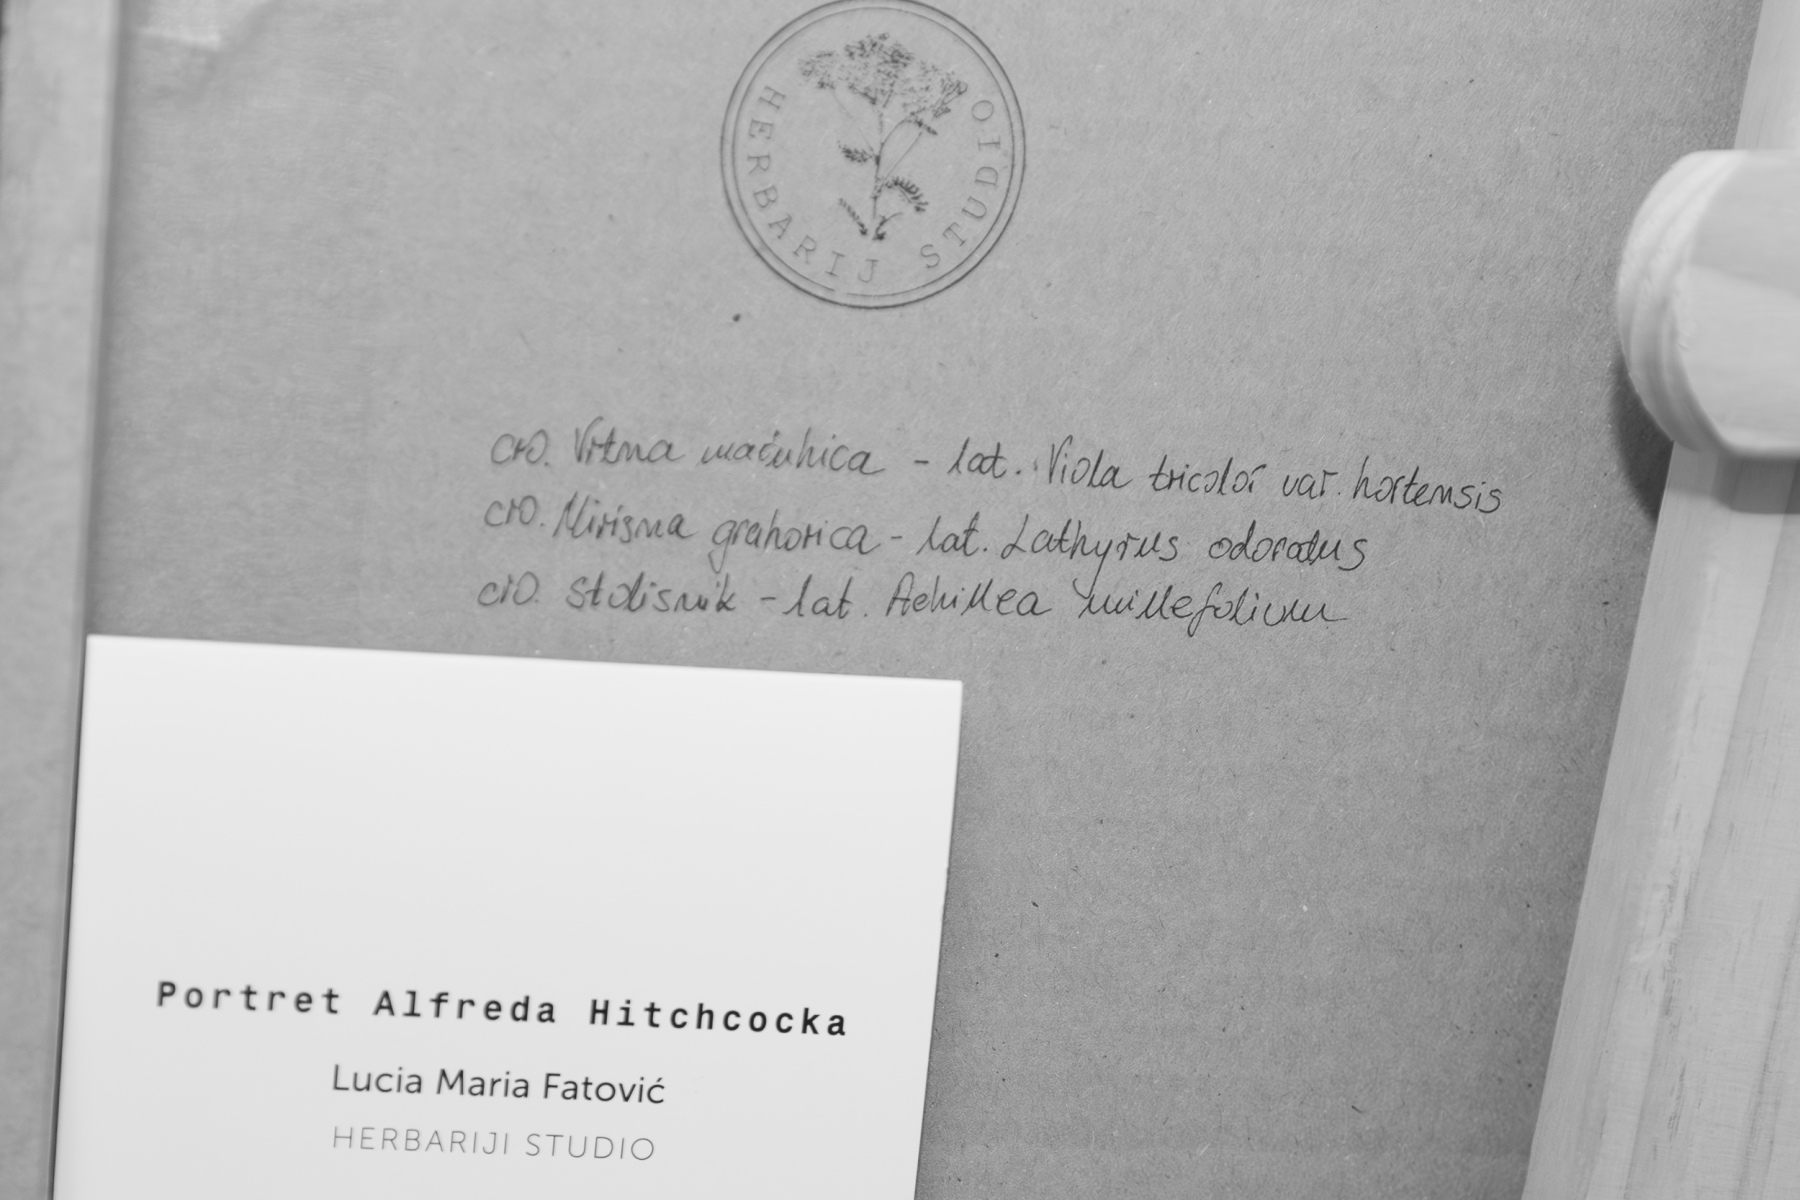 HERBARIJ STUDIO
cro. Vrtna maćuhica - lat. Viola tricolor var. hortensis
cro. Mirisna grahorica - lat. Lathyrus odoratus
cro. Stolisnik - lat. Achillea millefolium
Portret Alfreda Hitchcocka
Lucia Maria Fatović
HERBARIJI STUDIO